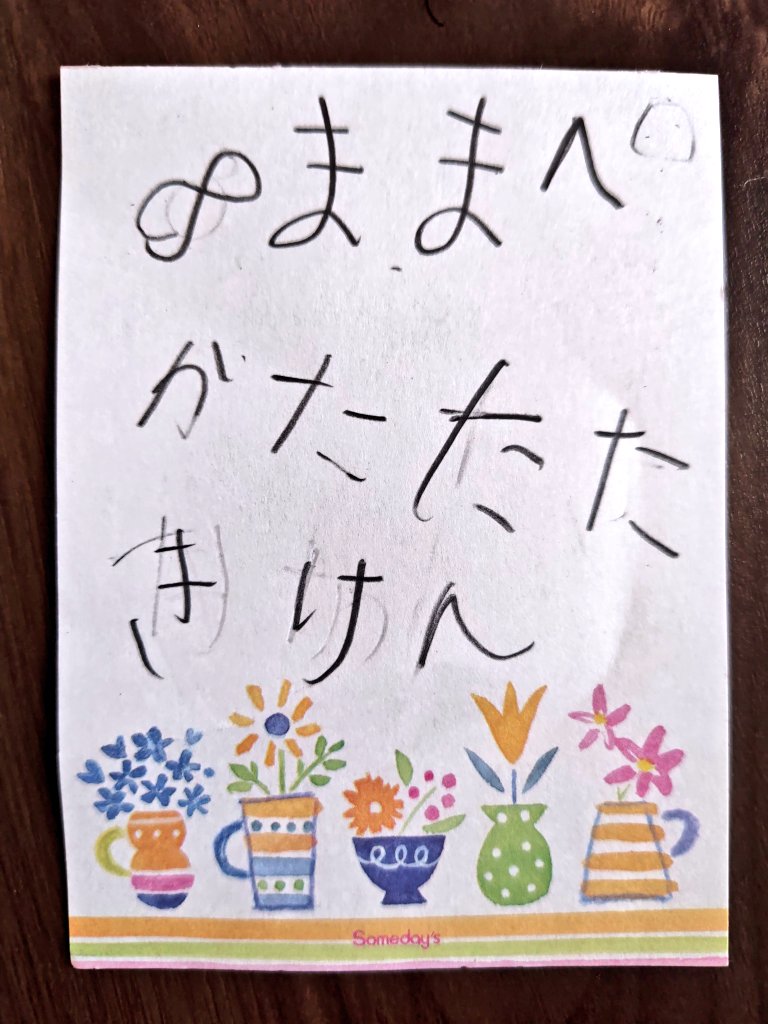 ∞ままへ
がたたた
きけん
Someday's